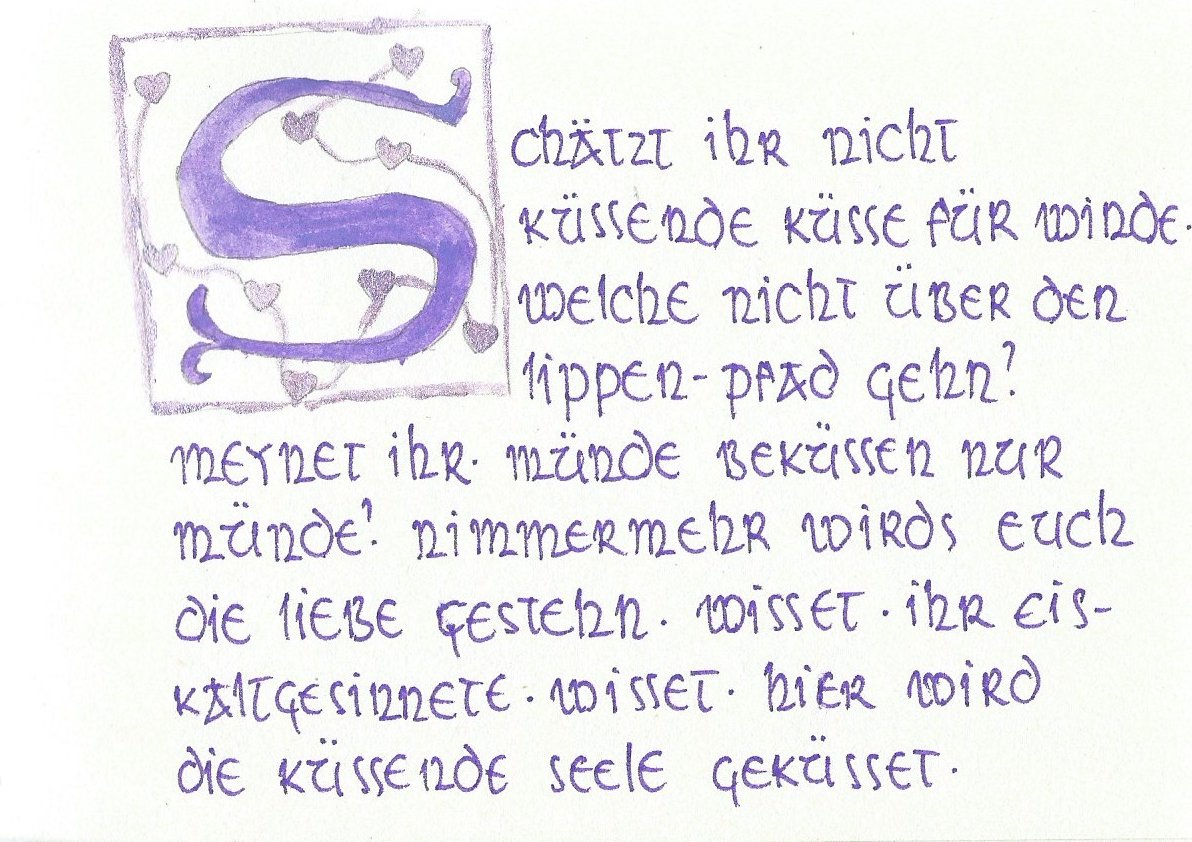 Schätzt ihr nicht
küssende küsse für winde·
welche nicht über den
lippen-pfad gehn?
meynet ihr· münde beküssen nur
münde? nimmermehr wirds euch
die liebe gestehn· wisset· ihr eis-
kaltgesinnete· wisset· hier wird
die küssende seele geküsset·